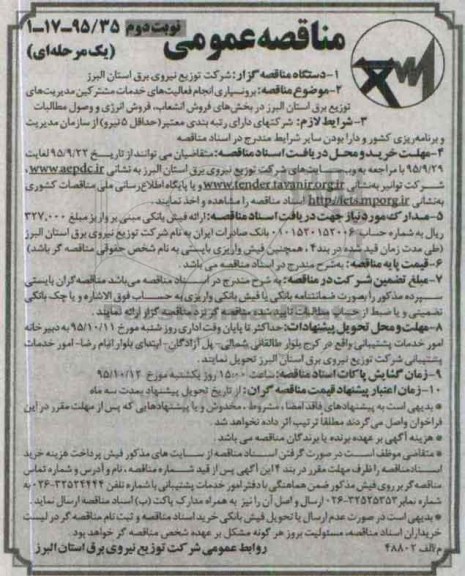 مناقصه عمومی
نوبت دوم ۹۵/۳۵-۱۷-۱
(یک مرحله‌ای)
۱-دستگاه مناقصه گزار: شرکت توزیع نیروی برق استان البرز
۲-موضوع مناقصه: برونسپاری انجام فعالیت‌های خدمات مشترکین مدیریت‌های
توزیع برق استان البرز در بخش‌های فروش انشعاب، فروش انرژی و وصول مطالبات
۳-شرایط لازم: شرکتهای دارای رتبه بندی معتبر (حداقل ۵ نیرو) از سازمان مدیریت
و برنامه‌ریزی کشور و دارا بودن سایر شرایط مندرج در اسناد مناقصه
۴-مهلت خرید و محل دریافت اسناد مناقصه: متقاضیان می توانند از تاریخ ۹۵/۹/۲۲ لغایت
۹۵/۹/۲۹ با مراجعه به وب سایت‌های شرکت توزیع نیروی برق استان البرز به نشانی www.aepdc.ir،
شرکت توانیر به‌نشانی www.tender.tavanir.org.ir و یا پایگاه اطلاع‌رسانی ملی مناقصات کشوری
به‌نشانی http://iets.mporg.ir اسناد مناقصه را مشاهده و اخذ نمایند.
۵-مدارک مورد نیاز جهت دریافت اسناد مناقصه: ارائه فیش بانکی مبنی بر واریز مبلغ ۳۲۷,۰۰۰
ریال به شماره حساب ۰۱۰۱۵۲۰۱۵۲۰۰۶ بانک صادرات ایران به نام شرکت توزیع نیروی برق استان البرز
(طی مدت زمان قید شده در بند ۴، همچنین فیش واریزی بایستی به نام شخص حقوقی مناقصه گر باشد)
۶-قیمت پایه مناقصه: به‌شرح مندرج در اسناد مناقصه می باشد.
۷-مبلغ تضمین شرکت در مناقصه: به شرح مندرج در اسناد مناقصه می‌باشد مناقصه‌گران بایستی
سپرده مذکور را بصورت ضمانتنامه بانکی یا فیش بانکی واریزی به حساب فوق الاشاره و یا چک بانکی
تضمینی و یا ضبط از حساب مطالبات تایید شده مناقصه گر نزد مناقصه گزار ارائه نمایند.
۸-مهلت و محل تحویل پیشنهادات: حداکثر تا پایان وقت اداری روز شنبه مورخ ۹۵/۱۰/۱۱ به دبیرخانه
امور خدمات پشتیبانی واقع در کرج بلوار طالقانی شمالی- پل آزادگان- ابتدای بلوار امام رضا- امور خدمات
پشتیبانی شرکت توزیع نیروی برق استان البرز تحویل نمایند.
۹-زمان گشایش پاکات اسناد مناقصه: ساعت ۱۵:۰۰ روز یکشنبه مورخ ۹۵/۱۰/۱۲
۱۰-زمان اعتبار پیشنهاد قیمت مناقصه گران: از تاریخ تحویل پیشنهاد بمدت سه ماه
* بدیهی است به پیشنهادهای فاقد امضا، مشروط، مخدوش و یا پیشنهادهایی که پس از مهلت مقرر در این
فراخوان واصل می گردند مطلقا ترتیب اثر داده نخواهد شد.
* هزینه آگهی بر عهده برنده یا برندگان مناقصه می باشد.
* متقاضی موظف است در صورت گرفتن اسناد مناقصه از سایت های مذکور فیش پرداخت هزینه خرید
اسناد مناقصه را ظرف مهلت مقرر در بند ۴ این آگهی پس از قید شماره مناقصه، نام و آدرس و شماره تماس
مناقصه گر بر روی فیش مذکور ضمن هماهنگی با دفتر امور خدمات پشتیبانی با شماره تلفن ۳۲۵۲۴۴۴۴-۰۲۶ به
شماره نمابر ۳۲۵۲۵۳۵۳-۰۲۶ ارسال و اصل آن را نیز به همراه مدارک پاکت (ب) اسناد مناقصه ارسال نماید.
* بدیهی است در صورت عدم ارسال یا تحویل فیش بانکی خرید اسناد مناقصه و ثبت نام مناقصه گر در لیست
خریداران اسناد مناقصه، مسئولیت بروز هر گونه مشکل بر عهده شخص مناقصه گر خواهد بود.
م‌الف ۴۸۸۰۲ روابط عمومی شرکت توزیع نیروی برق استان البرز